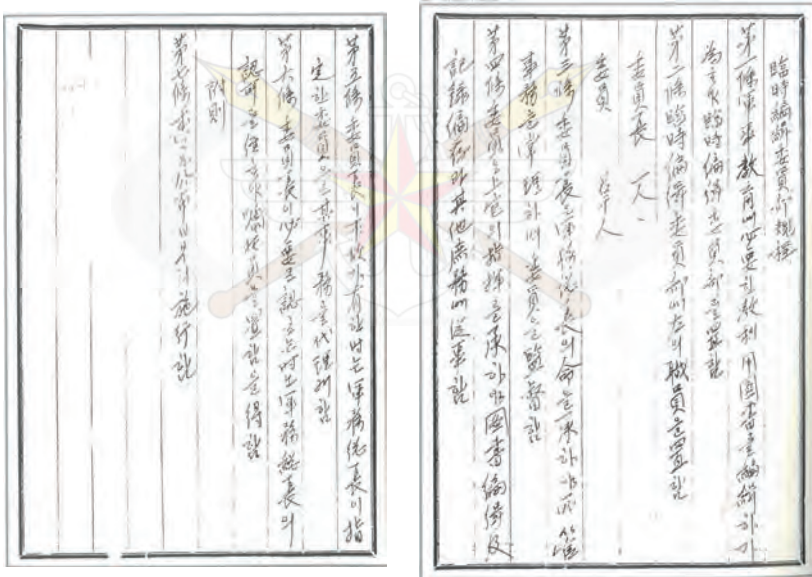 臨時編緝委員部規程
第一條 軍事敎育에 必要한 敎科用圖書를 編緝하기
爲하야 臨時編緝委員部를 置함
第二條 臨時編緝委員部에 左의 職員을 置함
委員長 一人
委員 若干人
第三條 委員長은 軍務總長의 命을 承하야 所管
事務를 掌理하며 委員을 監督함
第四條 委員은 上官의 指揮를 承하야 圖書編緝及
記錄編存과 其他庶務에 從事함
第五條 委員長이 事故가 有한 時는 軍務總長이 指
定한 委員으로 其事務를 代理케 함
第六條 委員長이 必要로 認하는 時는 軍務總長의
認可를 經하야 을 置함을 得함
附則
第七條 本 은 公布日부터 施行함